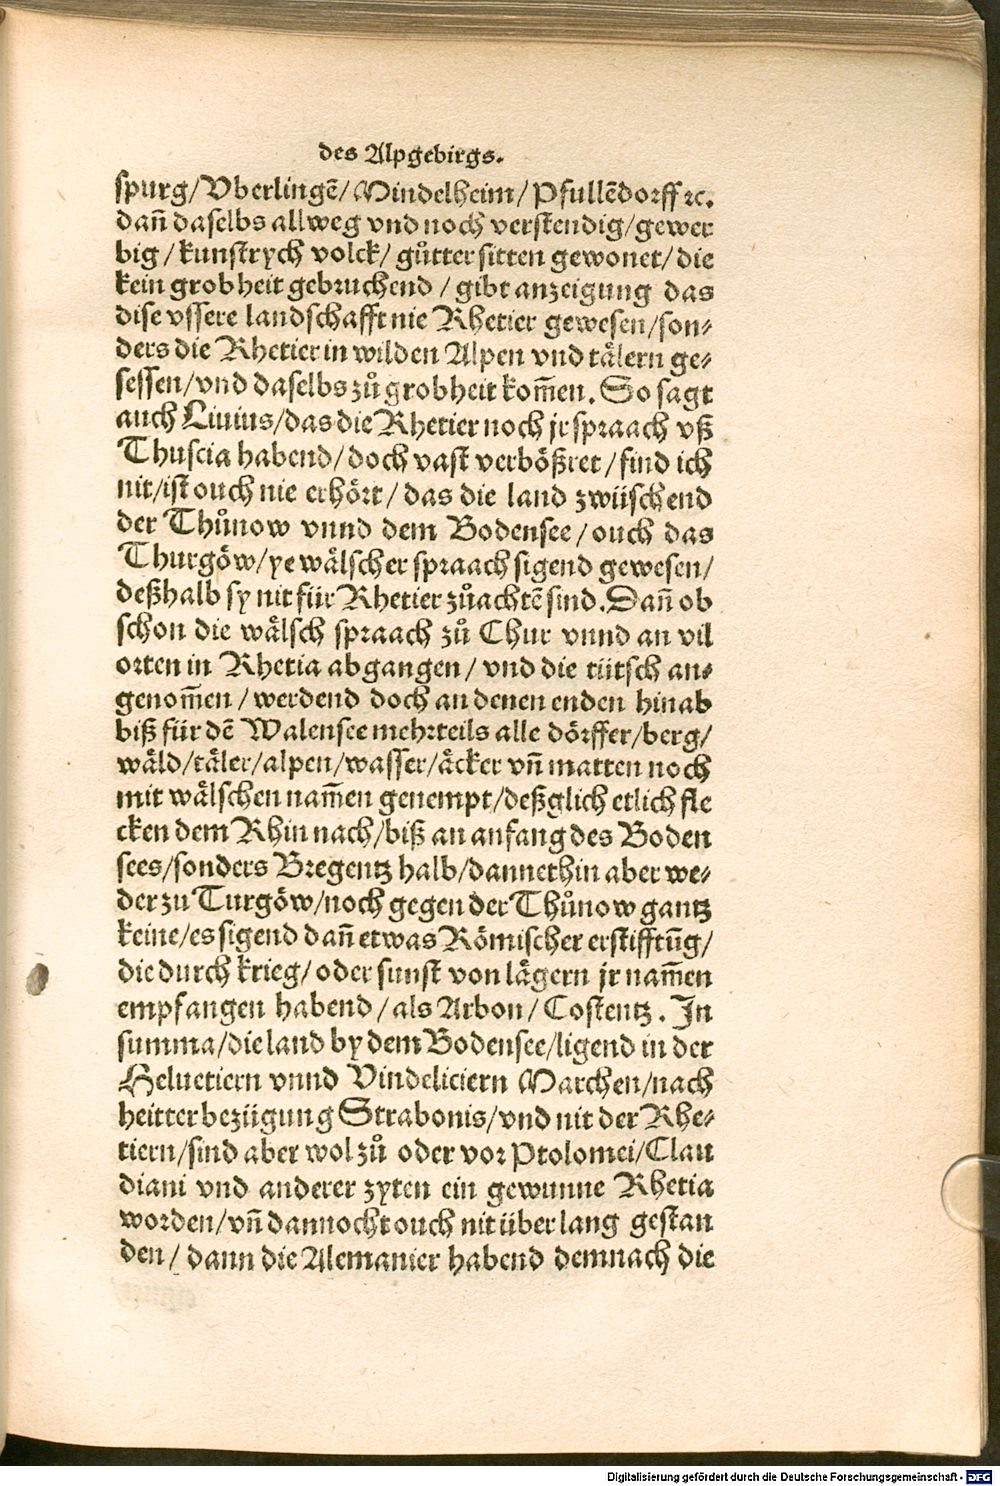 des Alpgebirgs.
spurg/Vberlingē/Mindelheim/Pfullēdorff ꝛc.
dañ daselbs allweg vnd noch verstendig/gewer
big/kunstrych volck/gůtter sitten gewonet/die
kein grobheit gebruchend/gibt anzeigung das
dise vssere landschafft nie Rhetier gewesen/son⸗
ders die Rhetier in wilden Alpen vnd tälern ge⸗
sessen/vnd daselbs zů grobheit kom̄en. So sagt
auch Liuius/das die Rhetier noch jr spraach vß
Thuscia habend/doch vast verbößret/find ich
nit/ist ouch nie erhört/das die land zwüschend
der Thůnow vnnd dem Bodensee/ouch das
Thurgöw/ye wälscher spraach sigend gewesen/
deßhalb sy nit für Rhetier zůachtē sind. Dañ ob
schon die wälsch spraach zů Chur vnnd an vil
orten in Rhetia abgangen/vnd die tütsch an⸗
genom̄en/werdend doch an denen enden hinab
biß für dē Walensee mehrteils alle dörffer/berg/
wäld/täler/alpen/wasser/äcker vñ matten noch
mit wälschen nam̄en genempt/deßglich etlich fle
cken dem Rhin nach/biß an anfang des Boden
sees/sonders Bregentz halb/dannethin aber we⸗
der zu Turgöw/noch gegen der Thůnow gantz
keine/es sigend dañ etwas Römischer erstifftūg/
die durch krieg/oder sunst von lägern jr nam̄en
empfangen habend/als Arbon/Costentz. In
summa/die land by dem Bodensee/ligend in der
Heluetiern vnnd Vindeliciern Marchen/nach
heitter bezügung Strabonis/vnd nit der Rhe⸗
tiern/sind aber wol zů oder vor Ptolomei/Clau
diani vnd anderer zyten ein gewunne Rhetia
worden/vñ dannocht ouch nit über lang gestan
den/dann die Alemanier habend demnach die
Digitalisierung gefördert durch die Deutsche Forschungsgemeinschaft - DFG